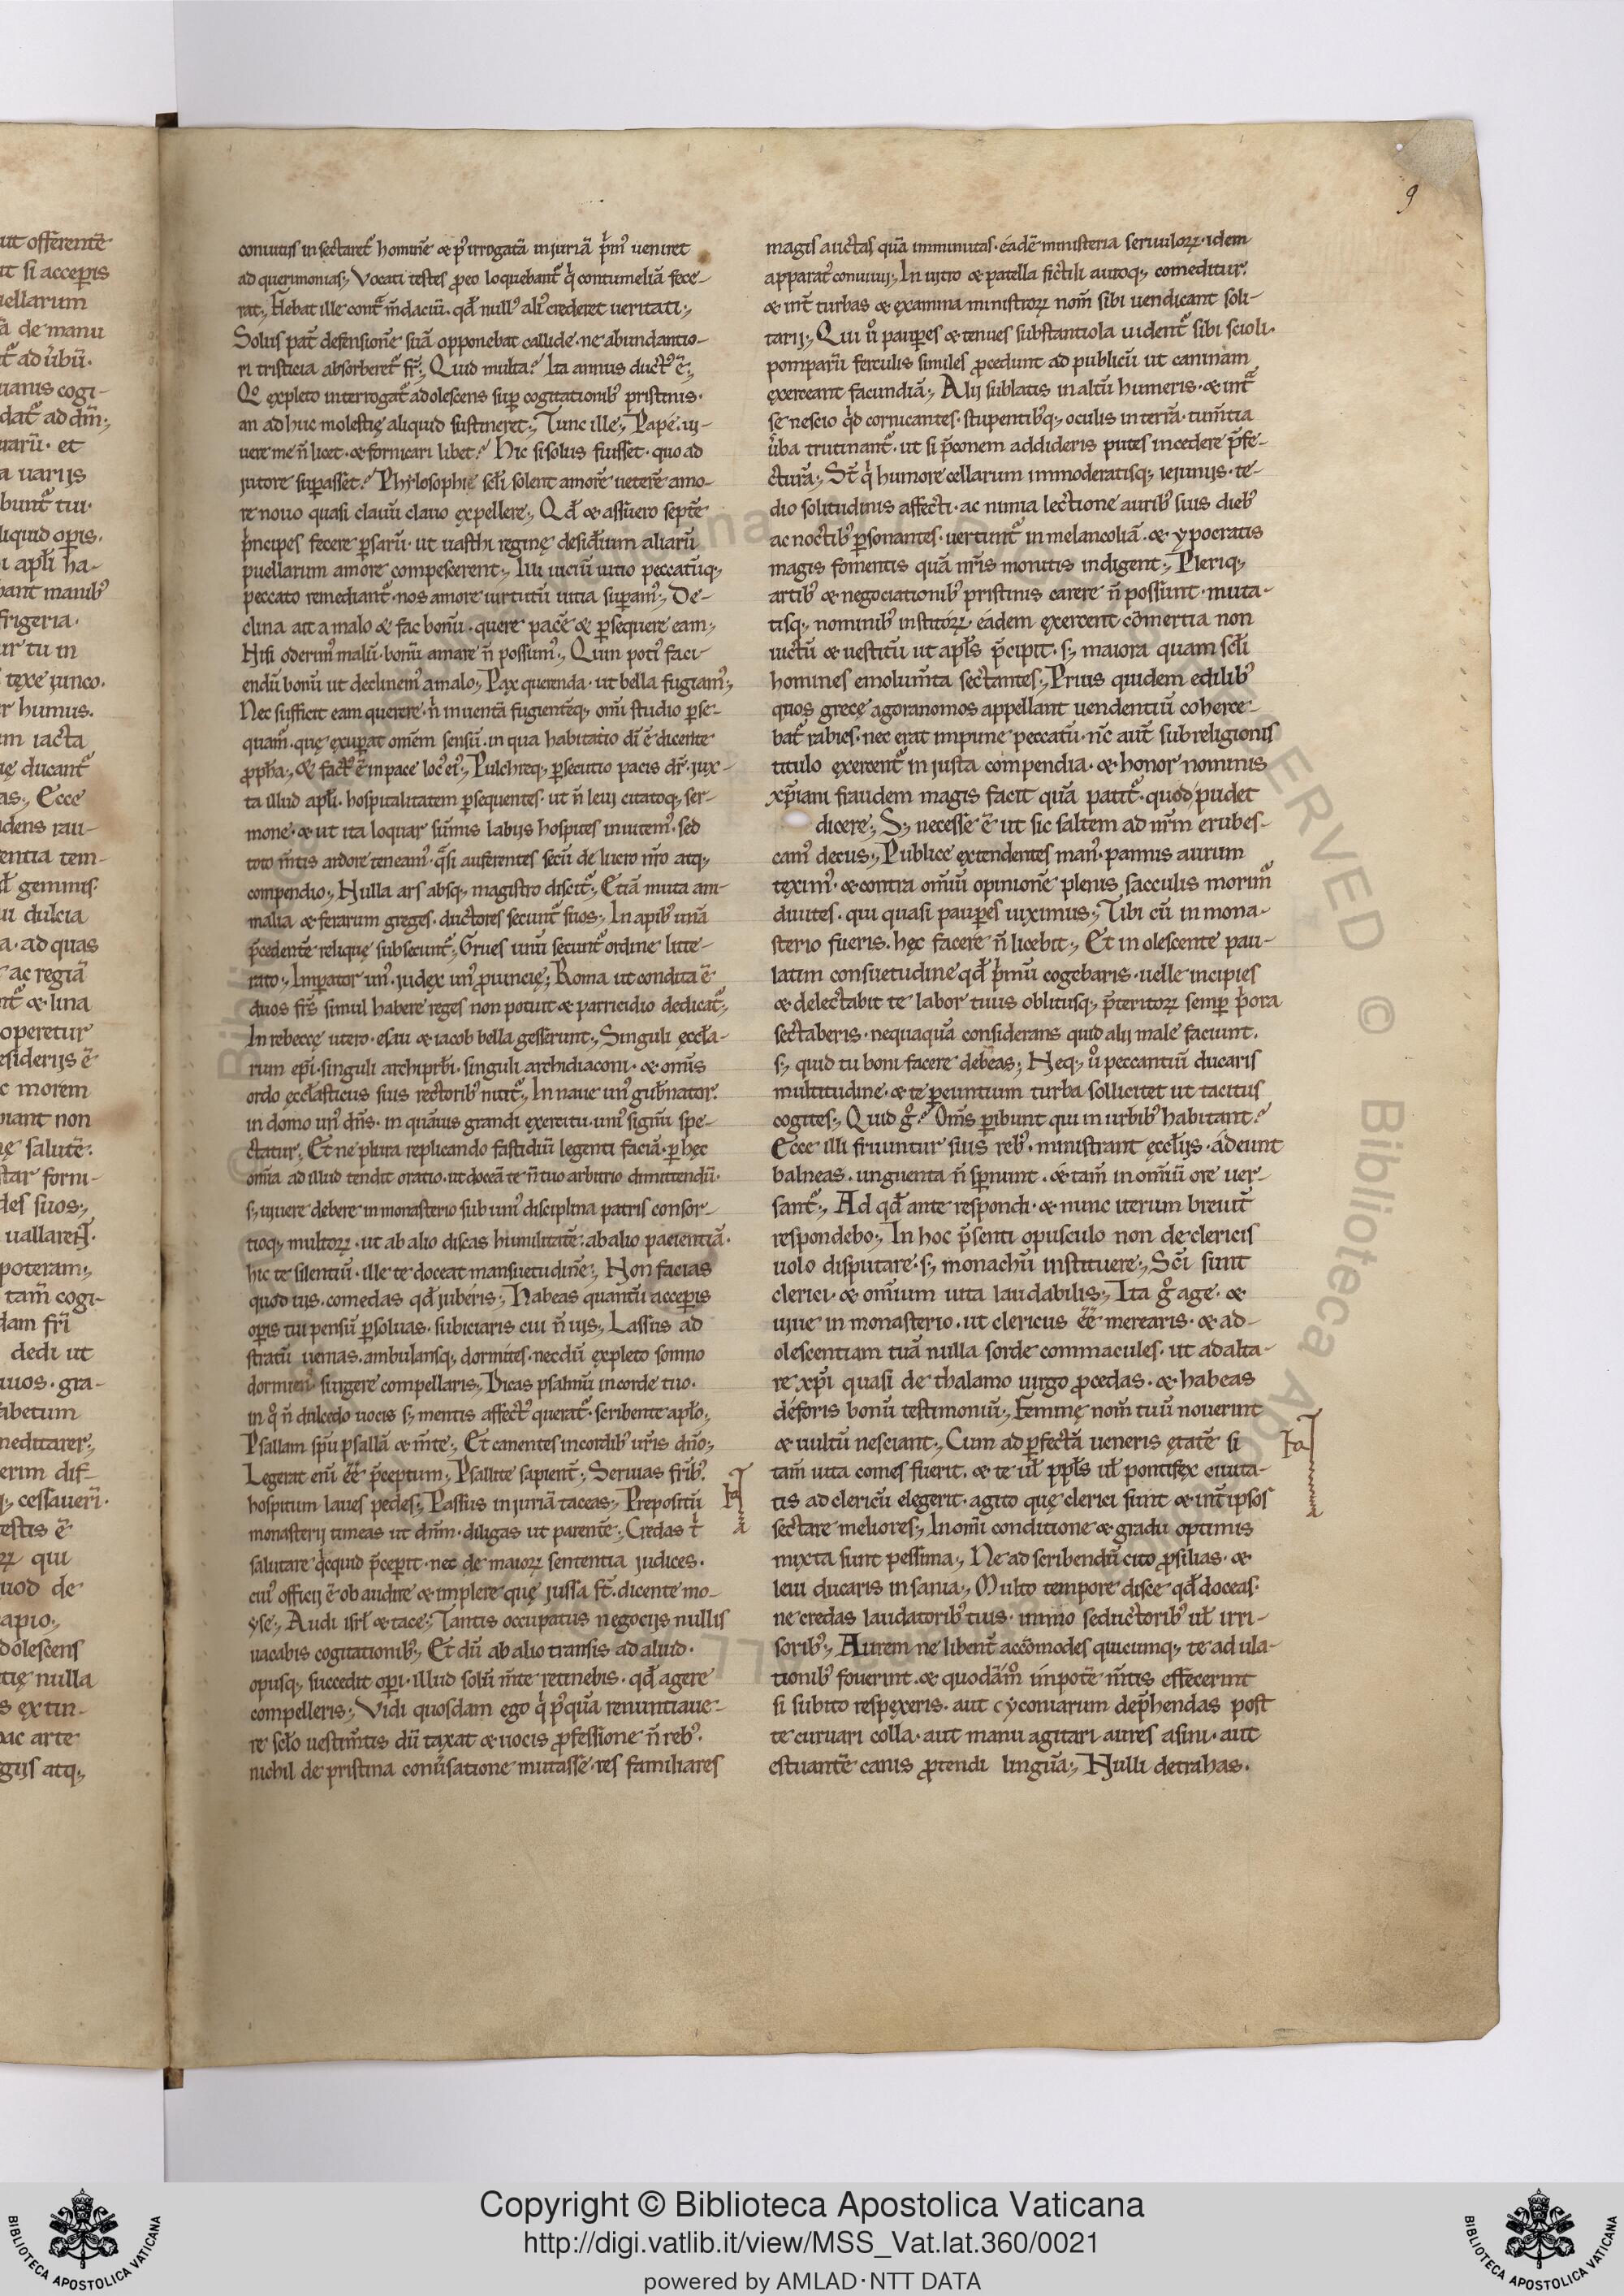 9
conuitijs insectaret᷒ hominē & p᷒ irrogatā injuriā p̍m᷒ ueniret
ad querimonias;, Vocati testes ꝓeo loquebant᷒ q̍ contumeliā fece-
rat;, Flebat ille cont̄ m̄daciū. qd̄ null᷒ ali᷒ crederet ueritati;,
Solus pat̄ defensionē suā opponebat callide. ne abundantio-
ri tristicia absorberet᷒ fr̄;, Quid multa? Ita annus duct᷒ ē;,
Qo expleto interrogat᷒ adolescens sup̱ cogitationib᷒ pristinis.
an adhuc molestię aliquid sustineret;, Tunc ille;, Pape. ui-
uere me n̄ licet. & fornicari libet? Hic si solus fuisset. quo ad
jutore sup̱asset? Phylosophie sc̄li solent amorē ueterē amo-
re nouo quasi clauū clauo expellere;, Qd̄ & assuero septē
p̍ncipes fecere p̱sarū. ut uasthi reginę desid̄ium aliarū
puellarum amore compescerent;, Illi uiciū uitio peccatūq;,
peccato remediant᷒. nos amore uirtutū uitia sup̱am᷒;, De-
clina ait a malo & fac bonū. quere pacē & p̱sequere eam;,
Nisi oderim᷒ malū. bonū amare n̄ possum᷒;, Quin poti᷒ faci-
endū bonū ut declinem᷒ a malo;, Pax querenda. ut bella fugiam᷒;,
Nec sufficit eam querere. n̍ inuentā fugientēq;, om̄i studio p̱se-
quam᷒. quę exup̱at omēm sensū. in qua habitatio dī ē dicente
ꝓph̄a;, & fact᷒ ē in pace loc᷒ ei᷒;, Pulchreq;, p̱secutio pacis dr̄. jux-
ta illud apl̄i. hospitalitatem p̱sequentes. ut n̄ leui citatoq;, ser-
mone. & ut ita loquar sum̄is labijs hospites inuitem᷒. sed
toto m̄tis ardore teneam᷒. q̄si auferentes secū de lucro nr̄o atq;,
compendio;, Nulla ars absq;, magistro discit᷒;, Etiā muta ani-
malia & ferarum greges. ductores secunt᷒ suos;, In apib᷒ unā
p̄cedentē relique subsecunt᷒;, Grues unū secunt᷒ ordine litte-
rato;, Imp̱ator un᷒. judex un᷒ ꝓuincię;, Roma ut condita ē
duos fr̄s simul habere reges non potuit & parricidio dedicat᷒;,
In rebeccę utero. esau & iacob bella gesserunt;, Singuli ęccl̄a-
rum ep̄i. singuli archipr̄bi. singuli archidiaconi. & omīs
ordo ęccl̄asticus suis rectorib᷒ nitit᷒;, In naue un᷒ gub̄nator.
in domo un᷒ dn̄s. in quāuis grandi exercitu. uni᷒ signū spe-
ctatur;, Et ne plura replicando fastidiū legenti faciā. p̱ hęc
om̄ia ad illud tendit oratio. ut doceā te n̄ tuo arbitrio dimittendū.
s;, uiuere debere in monasterio sub uni᷒ disciplina patris consor-
tioq;, multoꝝ. ut ab alio discas humilitatē: ab alio pacientiā.
hic te silentiū. ille te doceat mansuetudinē;, Non facias
quod uis. comedas qd̄ juberis;, Habeas quantū accep̱is
op̱is tui pensū p̱soluas. subiciaris cui n̄ uis;, Lassus ad
stratū uenias. ambulansq;, dormites. necdū expleto somno
dormiens surgere compellaris;, Dicas psalmū in corde tuo.
in q̊ n̄ dulcedo uocis s;, mentis affect᷒ querat᷒. scribente apl̄o;,
Psallam spū psallā & m̄te;, Et canentes in cordib᷒ ur̄is dn̄o;,
Legerat eni ēē p̄ceptum;, Psallite sapient̄;, Seruias fr̄ib᷒.
hospitum laues pedes;, Passus injuriā taceas;, Prepositū
monasterij timeas ut dn̄m. diligas ut parentē;, Credas t̍
salutare q̍cquid p̄cep̱it. nec de maioꝝ sententia judices.
cui᷒ officij ē obaudire & implere quę jussa st̄. dicente mo-
yse;, Audi isrl̄ & tace;, Tantis occupatus negocijs nullis
uacabis cogitationib᷒;, Et dū ab alio transis ad aliud.
opusq;, succedit op̱i. illud solū m̄te retinebis. qd̄ agere
compelleris;, Vidi quosdam ego q̍ p᷒quā renuntiaue-
re sc̄lo uestim̄tis dū taxat & uocis ꝓfessione n̄ reb᷒.
nichil de pristina conu̍satione mutasse. res familiares
magis auctas quā imminutas. eadē ministeria seruuloꝝ. idem
apparat᷒ conuiuij;, In uitro & patella fictili auroq;, comeditur.
& int̄ turbas & examina ministroꝝ nom̄ sibi uendicant soli-
tarij;, Qui u̍o paup̱es & tenues substantiola uident᷒ sibi scioli.
pomparū ferculis similes ꝓcedunt ad publicū ut caninam
exerceant facundiā;, Alij sublatis in altū humeris. & int̄
se nescio q̍d cornicantes. stupentib᷒q;, oculis in terrā. tum̄tia
u̍ba trutinant᷒. ut si p̄conem addideris putes incedere p̄fe-
cturā;, St̄ q̍ humore cellarum immoderatisq;, iejunijs. te-
dio solitudinis affecti. ac nimia lectione aurib᷒ suis dieb᷒
ac noctib᷒ p̱sonantes. uertunt᷒ in melancoliā. & ypocratis
magis fomentis quā nr̄is monitis indigent;, Pleriq;,
artib᷒ & negociationib᷒ pristinis carere n̄ possunt. muta-
tisq;, nominib᷒ institoꝝ. eadem exercent cōmertia non
uictū & uestitū ut apl̄s p̄cipit. s;, maiora quam sc̄li
homines emolum̄ta sectantes;, Prius quidem edilib᷒
quos grecę agoranomos appellant uendentiū coherce-
bat᷒ rabies. nec erat impune peccatū. nc̄ aut̄ sub religionis
titulo exercent᷒ injusta compendia. & honor nominis
xp̄iani fraudem magis facit quā patit᷒. quod pudet
dicere;, S;, necesse ē ut sic saltem ad nr̄m erubes-
cam᷒ decus;, Publice extendentes man᷒. pannis aurum
tęxim᷒. & contra om̄iū opinionē plenis sacculis morim᷒
diuites. qui quasi paup̱es uiximus;, Tibi cū in mona-
sterio fueris. hęc facere n̄ licebit;, Et inolescente pau-
latim consuetudine qd̄ p̍mū cogebaris. uelle incipies
& delectabit te labor tuus oblitusq;, p̄teritoꝝ semp̱ p̍ora
sectaberis. nequaquā considerans quid alij male faciunt.
s;, quid tu boni facere debeas;, Neq;, u̍o peccantiū ducaris
multitudine. & te p̱euntium turba sollicitet ut tacitus
cogites;, Quid g̊? Om̄s p̱ibunt qui in urbib᷒ habitant?
Ecce illi fruuntur suis reb᷒. ministrant ęccl̄ijs. adeunt
balneas. unguenta n̄ sp̱nunt. & tam̄ in om̄iū ore uer-
sant᷒;, Ad qd̄ ante respondi. & nunc iterum breuit̄
respondebo;, In hoc p̄senti opusculo non de clericis
uolo disputare. s;, monachū instituere;, Sc̄i sunt
clerici. & om̄ium uita laudabilis;, Ita g̊ age. &
uiue in monasterio. ut clericus ēē merearis. & ad-
olescentiam tuā nulla sorde commacules. ut ad alta-
re xp̄i quasi de thalamo uirgo ꝓcedas. & habeas
deforis bonū testimoniū;, Feminę nom̄ tuū nouerint
& uultū nesciant;, Cum ad p̱fectā ueneris ętatē si
tam̄ uita comes fuerit. & te ul̄ ppl̄s ul̄ pontifex ciuita-
tis ad clericū elegerit. agito quę clerici sunt & int̄ ipsos
sectare meliores;, In om̄i conditione & gradu optimis
mixta sunt pessima;, Ne ad scribendū cito ꝓsilias. &
leui ducaris insania;, Multo tempore disce qd̄ doceas.
ne credas laudatorib᷒ tuis. immo seductorib᷒ ul̄ irri-
sorib᷒;, Aurem ne libent̄ accōmodes quicumq;, te adula-
tionib᷒ fouerint. & quodāmo inpotē m̄tis effecerint
si subito respexeris. aut cyconiarum dep̄hendas post
te curuari colla. aut manu agitari aures asini. aut
estuantē canis ꝓtendi linguā;, Nulli detrahas.
Copyright © Biblioteca Apostolica Vaticana
http://digi.vatlib.it/view/MSS_Vat.lat.360/0021
powered by AMLAD·NTT DATA